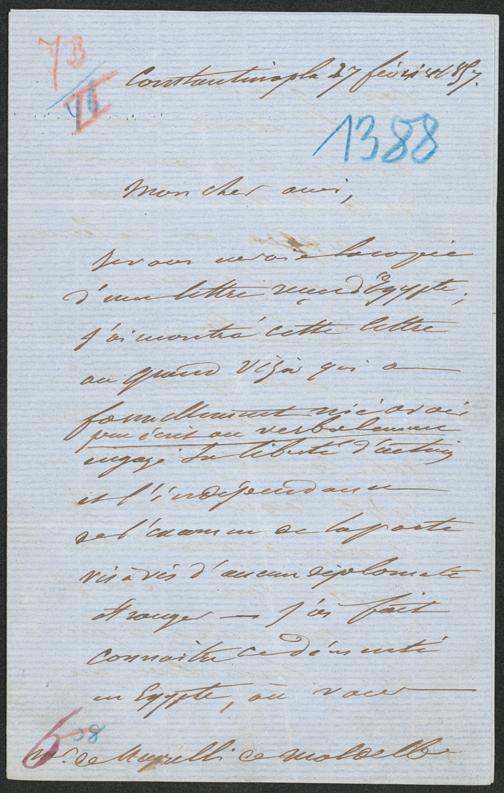 73
VI
Constantinople 27 février 1857.
1388
Mon cher ami,
Je vous envoie la copie
d'une lettre reçue d'Égypte;
j'ai montré cette lettre
au grand vizir qui a
formellement nié avoir
par écrit ou verbalement
engagé sa liberté d'action
et l'indépendance
de l'examen de la porte
vis à vis d'aucun diplomate
étranger — j'ai fait
connaître ce démenti
en Egypte, où vous
58
6
de